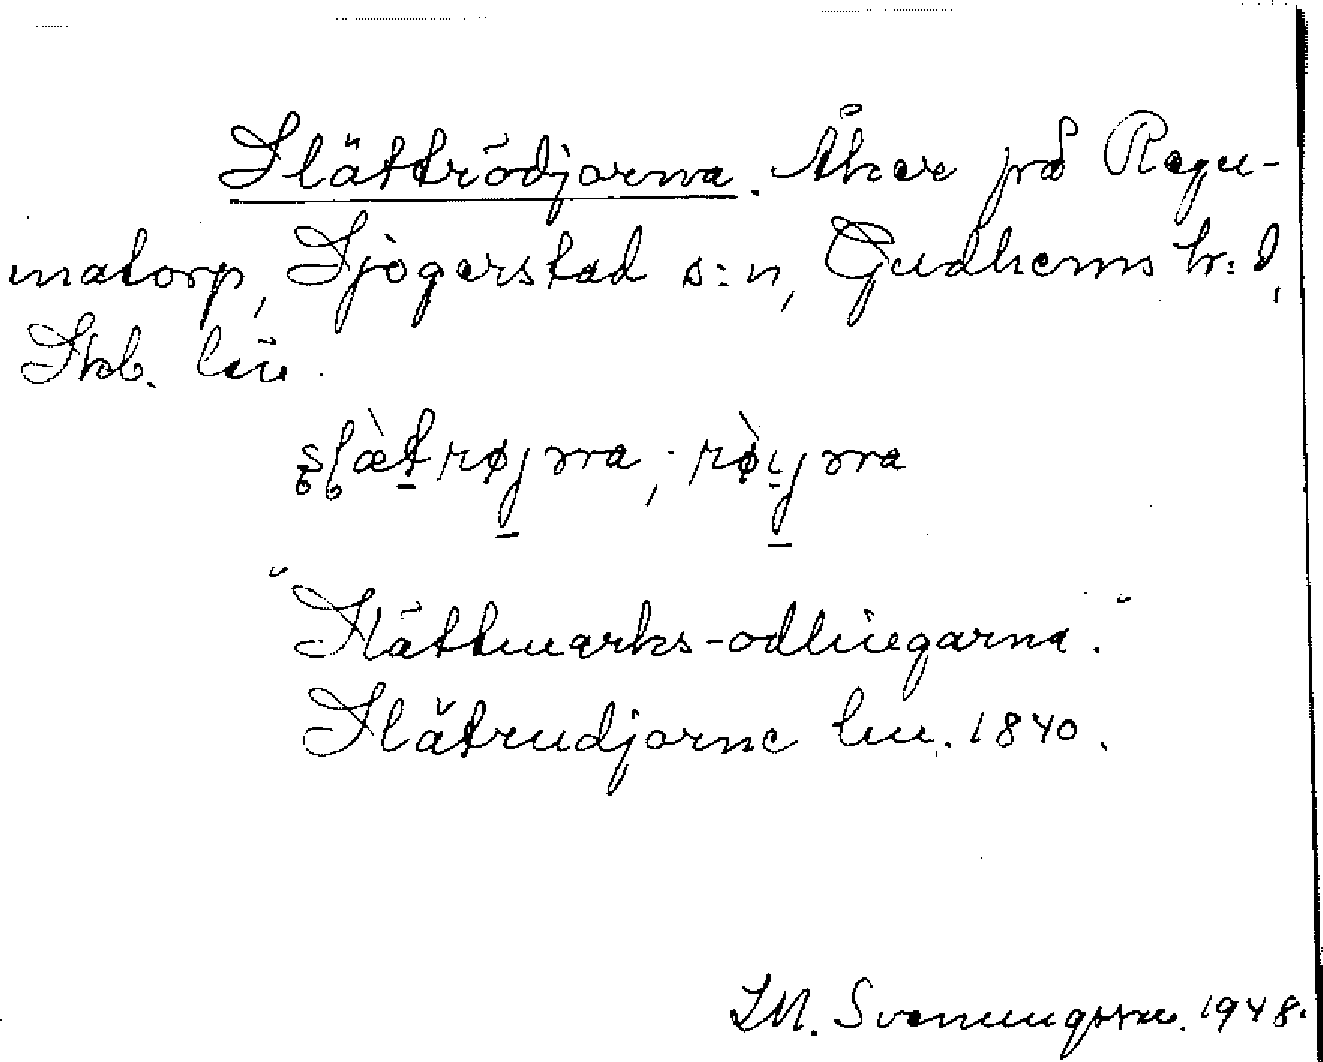 Slättrödjorna. Åker på Ragn-
matorp, Sjögerstad s:n, Gudhems hr:d,
Skb. län.
slæ̀trøjɳa, rø̀jɳa
"Slättmarks-odlingarna."
Slätrudjorne lm. 1840.
Svenungsson. 1948.